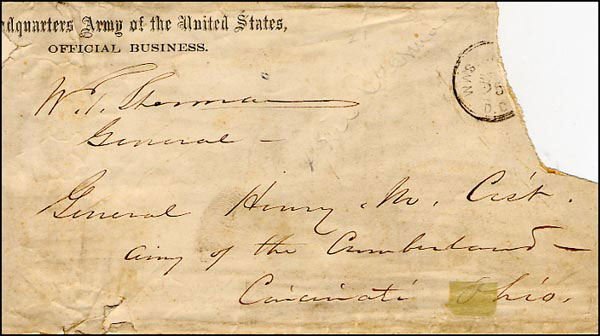 dquarters Army of the United States,
OFFICIAL BUSINESS.
W. T. Sherman
General -
General Henry M. Cist.
army of the Cumberland -
Cincinnati Ohio.
25
D.C